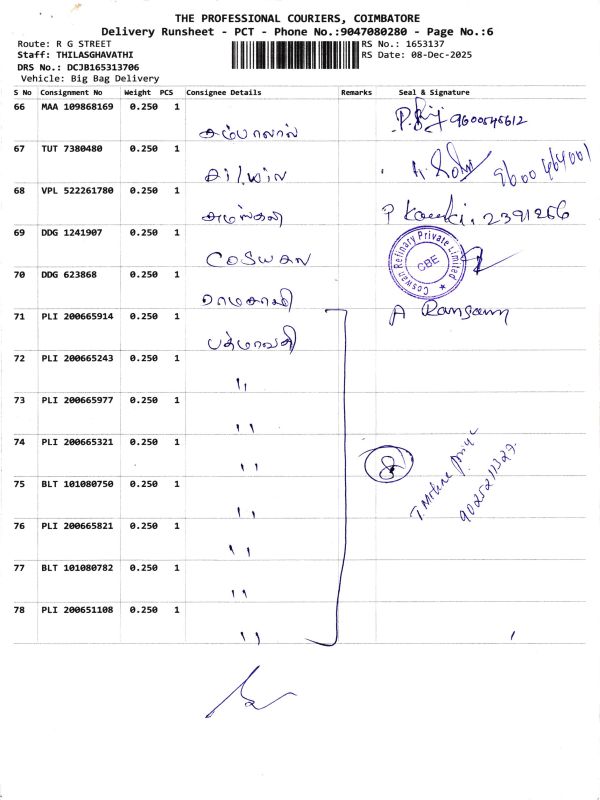 THE PROFESSIONAL COURIERS, COIMBATORE
Delivery Runsheet - PCT - Phone No.:9047080280 - Page No.:6
Route: R G STREET
RS No.: 1653137
Staff: THILASGHAVATHI
RS Date: 08-Dec-2025
DRS No.: DCJB165313706
Vehicle: Big Bag Delivery
S No Consignment No Weight PCS Consignee Details Remarks Seal & Signature
66 MAA 109868169 0.250 1
9600545612
67 TUT 7380480 0.250 1
9600464001
68 VPL 522261780 0.250 1
2391266
69 DDG 1241907 0.250 1
COSWAN
Coswan Refinary Private Limited
CBE
70 DDG 623868 0.250 1
71 PLI 200665914 0.250 1
பத்மாவதி
72 PLI 200665243 0.250 1
"
73 PLI 200665977 0.250 1
"
74 PLI 200665321 0.250 1
"
8
75 BLT 101080750 0.250 1
"
76 PLI 200665821 0.250 1
"
77 BLT 101080782 0.250 1
"
78 PLI 200651108 0.250 1
"